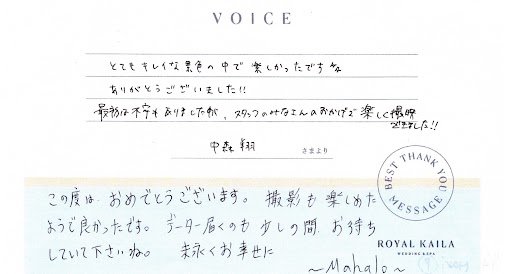 VOICE
とてもキレイな景色の中で楽しかったですね
ありがとうございました!!
最初は不安もありましたが、スタッフのみなさんのおかげで楽しく撮影
できました!!
中森 翔 さまより
BEST THANK YOU MESSAGE
この度は、おめでとうございます。撮影も楽しめた
ようで良かったです。データー届くのも少しの間、お待ち
していて下さいね。末永くお幸せに
ROYAL KAILA
WEDDING & SPA
~Mahalo~